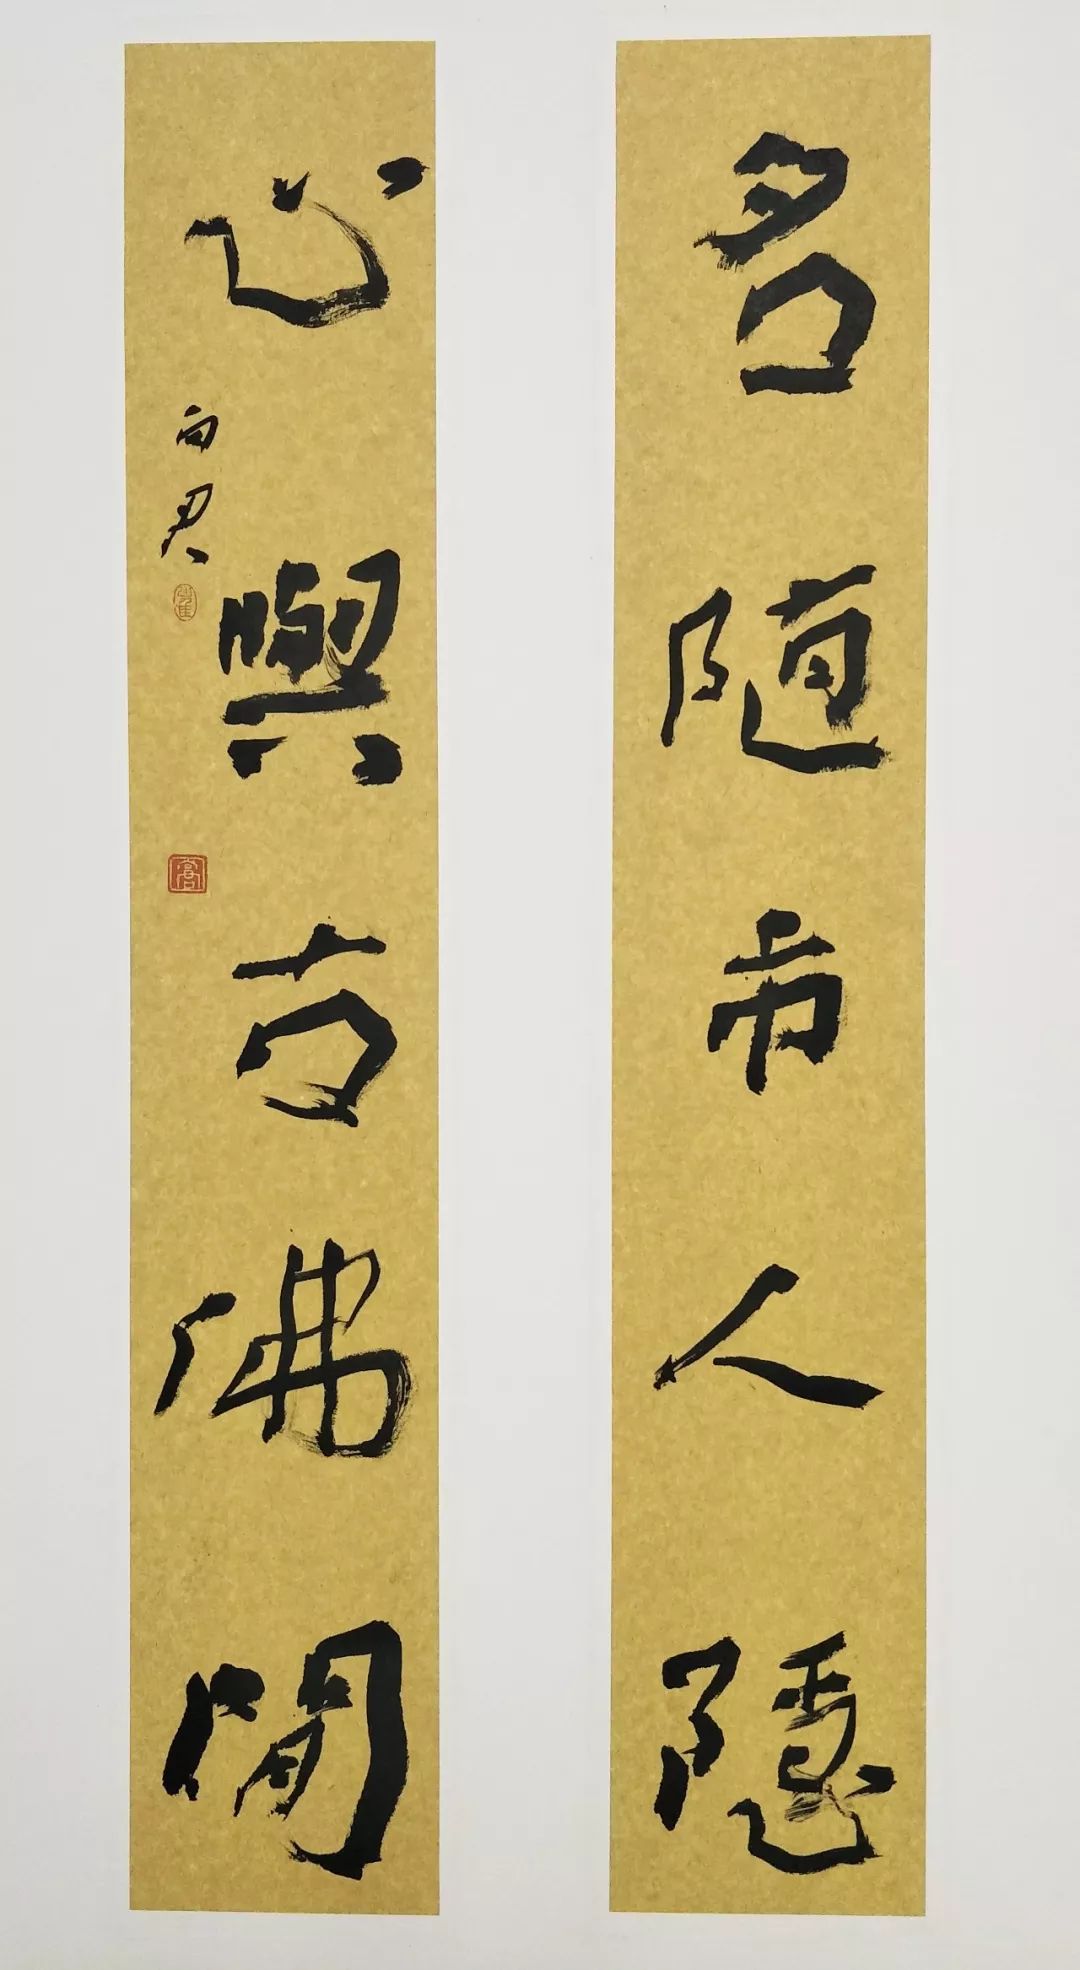 名隨市人隱
心與古佛閒